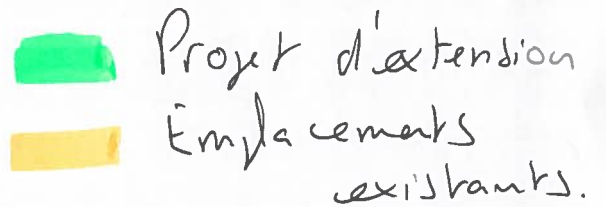 Projet d'extension
Emplacements
existants.